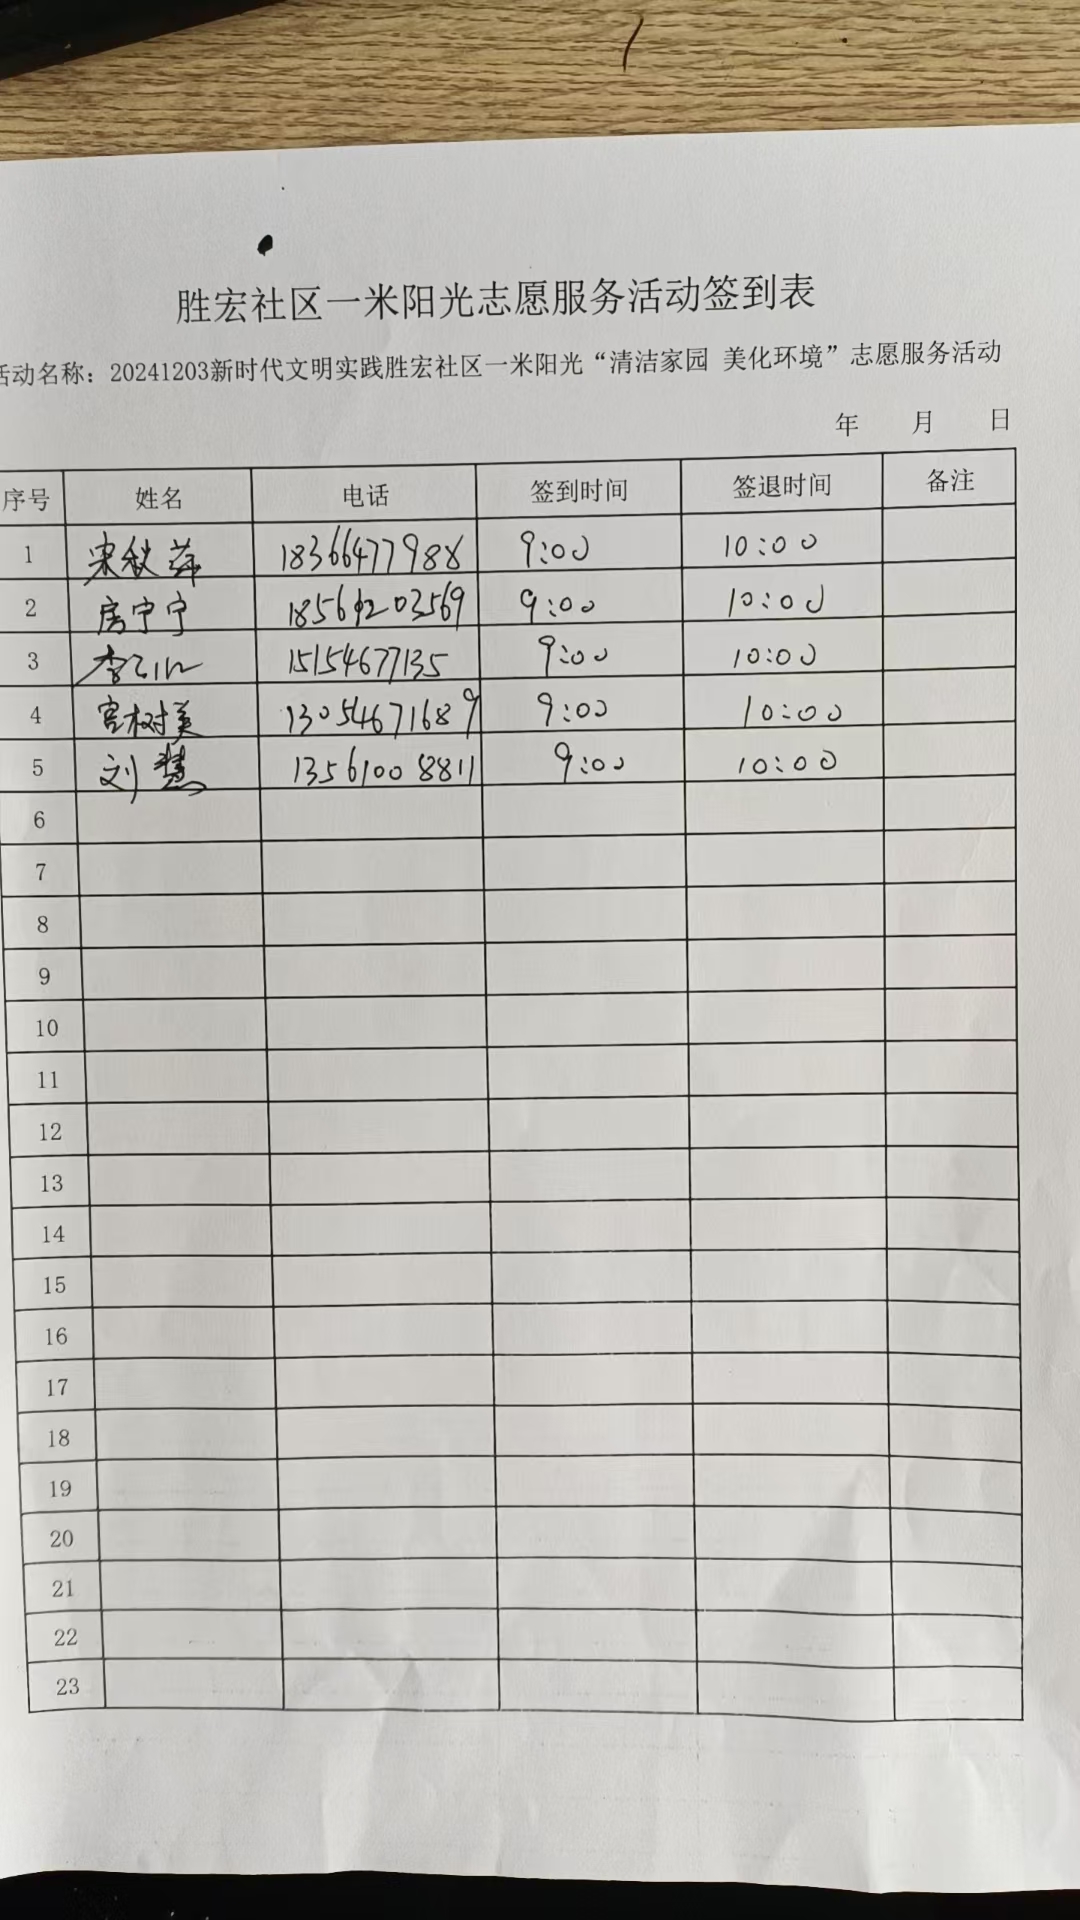 胜宏社区一米阳光志愿服务活动签到表
活动名称：20241203新时代文明实践胜宏社区一米阳光“清洁家园 美化环境”志愿服务活动
年 月 日
序号 姓名 电话 签到时间 签退时间 备注
1 宋秋萍 18366477988 9:00 10:00
2 房宁宁 18569203569 9:00 10:00
3 李 15154677135 9:00 10:00
4 宫树美 13054671689 9:00 10:00
5 刘慧 13561008811 9:00 10:00
6
7
8
9
10
11
12
13
14
15
16
17
18
19
20
21
22
23